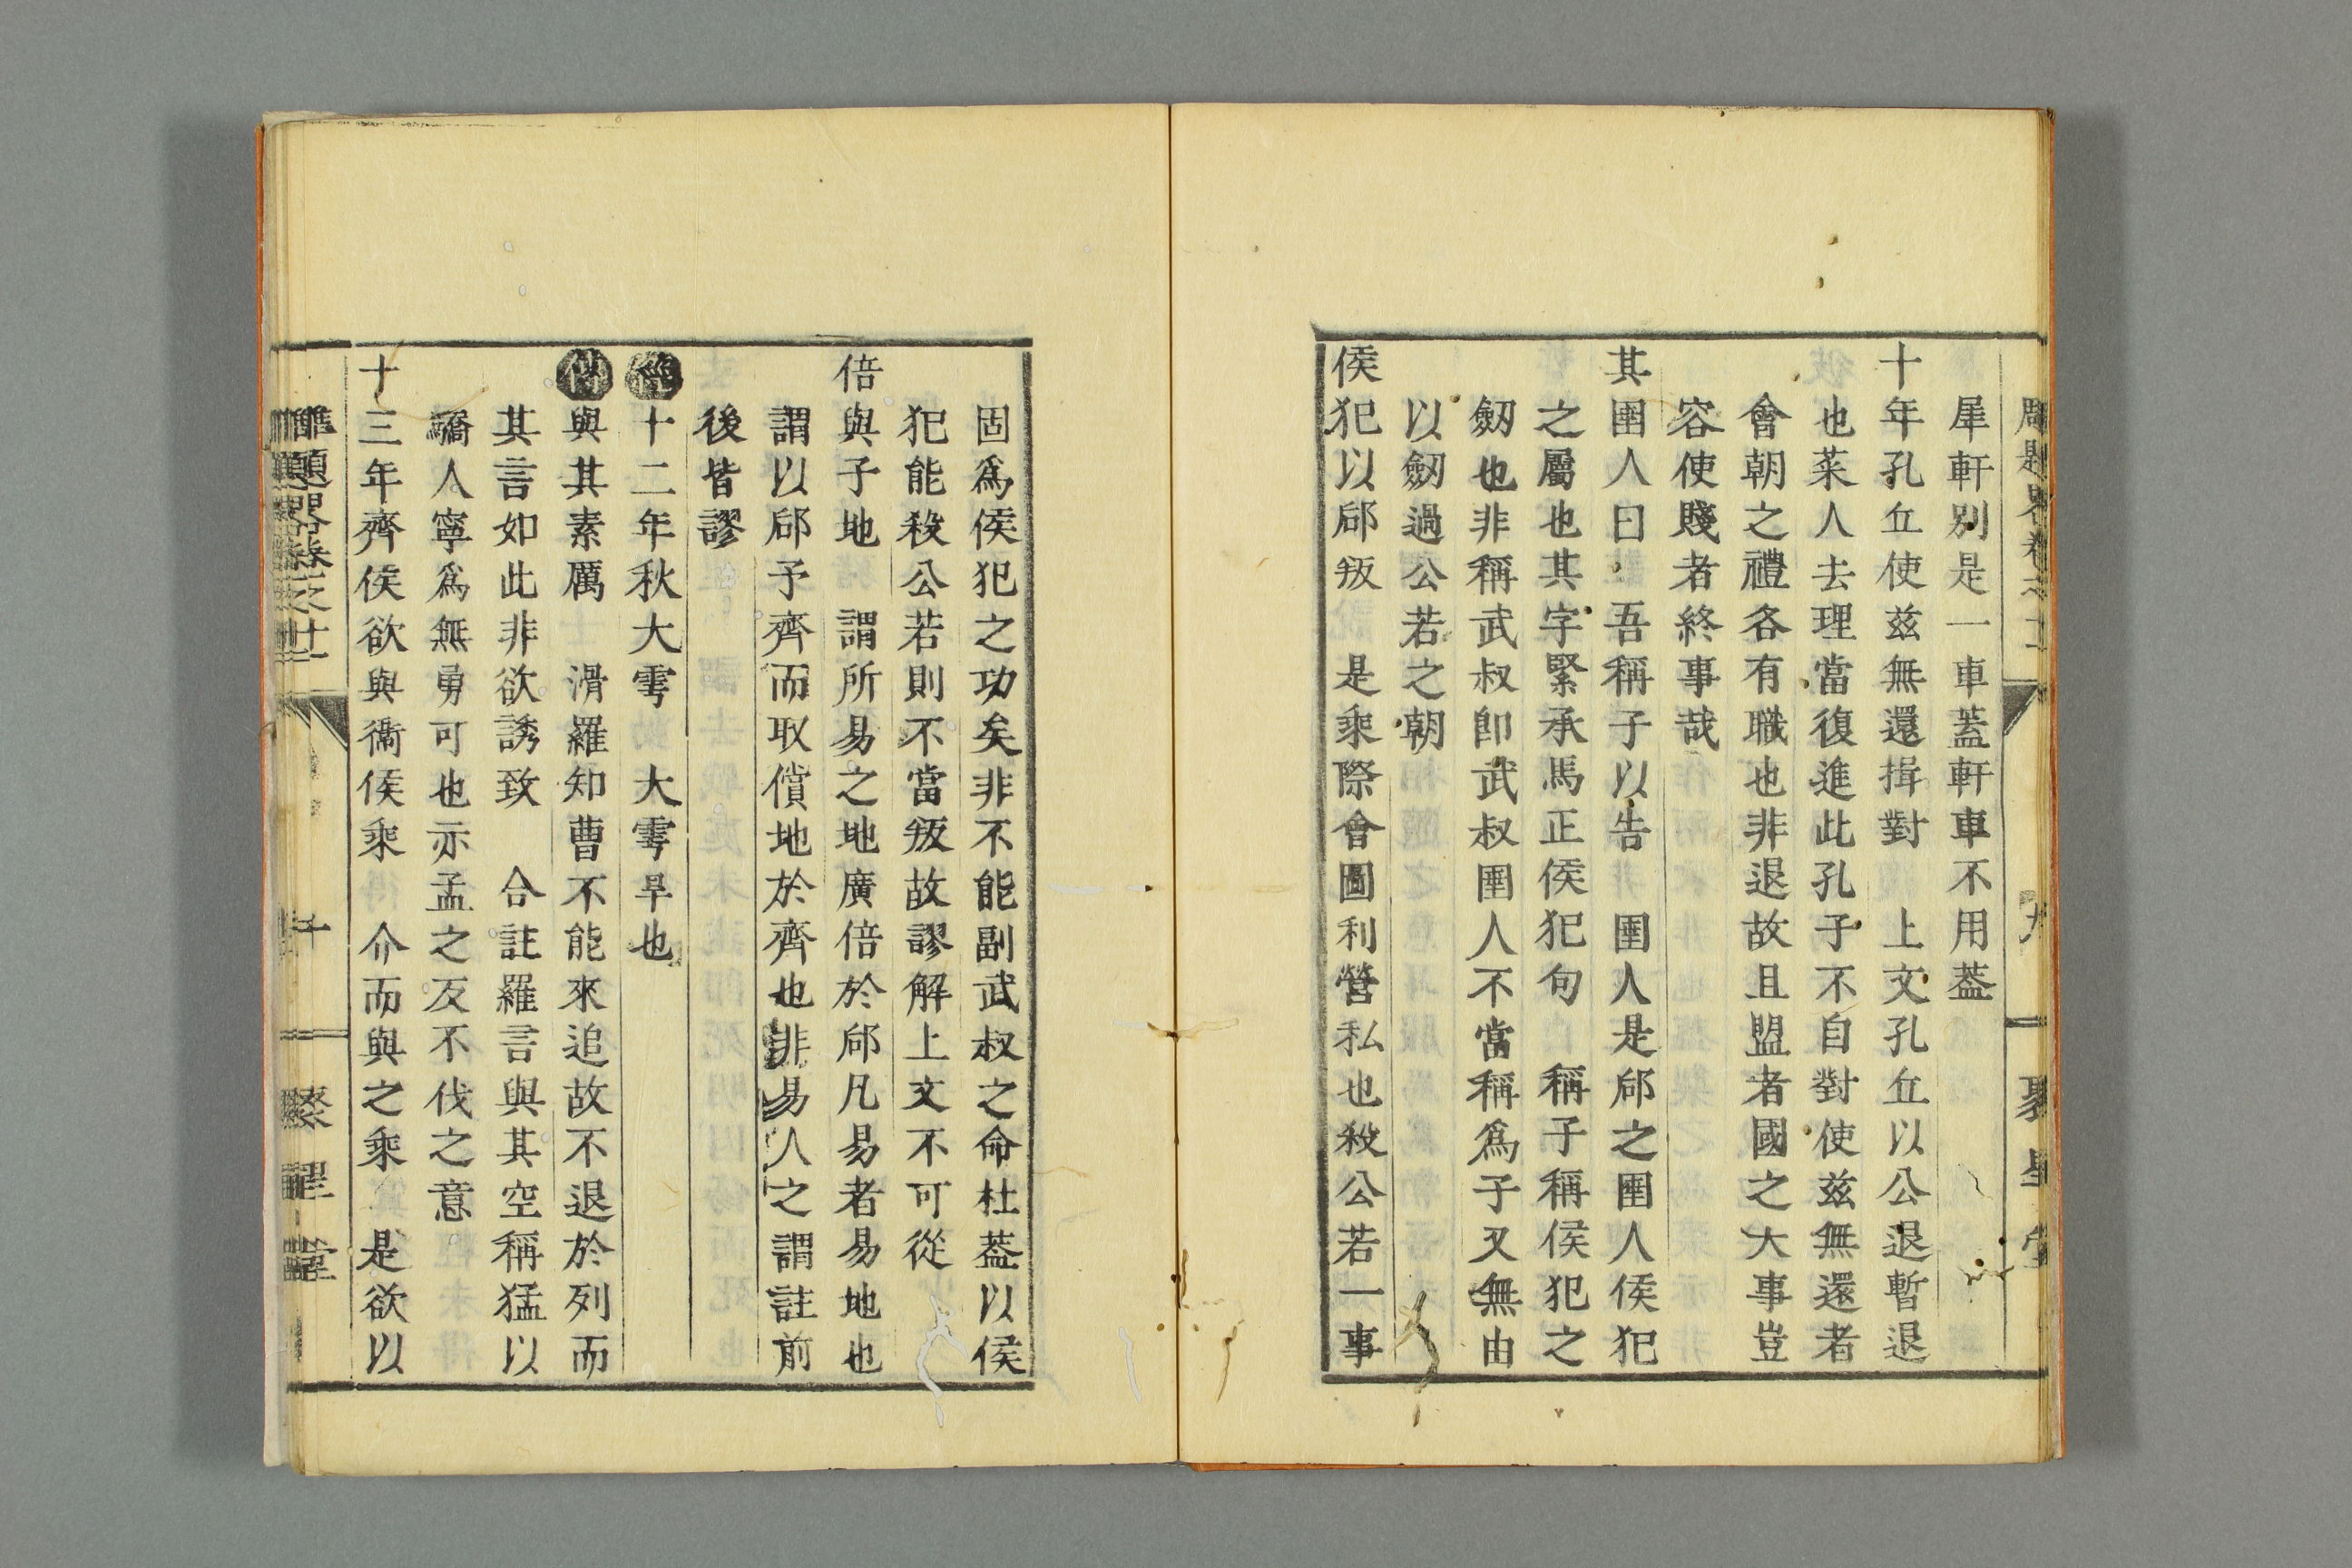 犀軒別是一車蓋軒車不用蓋
十年孔丘使茲無還揖對　上文孔丘以公退暫退
也萊人去理當復進此孔子不自對使茲無還者
會朝之禮各有職也非退故且盟者國之大事豈
容使賤者終事哉
其圉人曰　吾稱子以告　圉人是郈之圉人侯犯
之屬也其字緊承馬正侯犯句　稱子稱侯犯之
劒也非稱武叔卽武叔圉人不當稱爲子又無由
以劒過公若之朝
侯犯以郈叛　是乘際會圖利營私也殺公若一事
固爲侯犯之功矣非不能副武叔之命杜蓋以侯
犯能殺公若則不當叛故謬解上文不可從
倍與子地　謂所易之地廣倍於郈凡易者易地也
謂以郈予齊而取償地於齊也非易人之謂註前
後皆謬
經十二年秋大雩　大雩旱也
傳與其素厲　滑羅知曹不能來追故不退於列而
其言如此非欲誘致　合註羅言與其空稱猛以
驕人寧爲無勇可也亦孟之反不伐之意
十三年齊侯欲與衞侯乘　介而與之乘　是欲以
雕題畧卷之十二
十
聚星堂